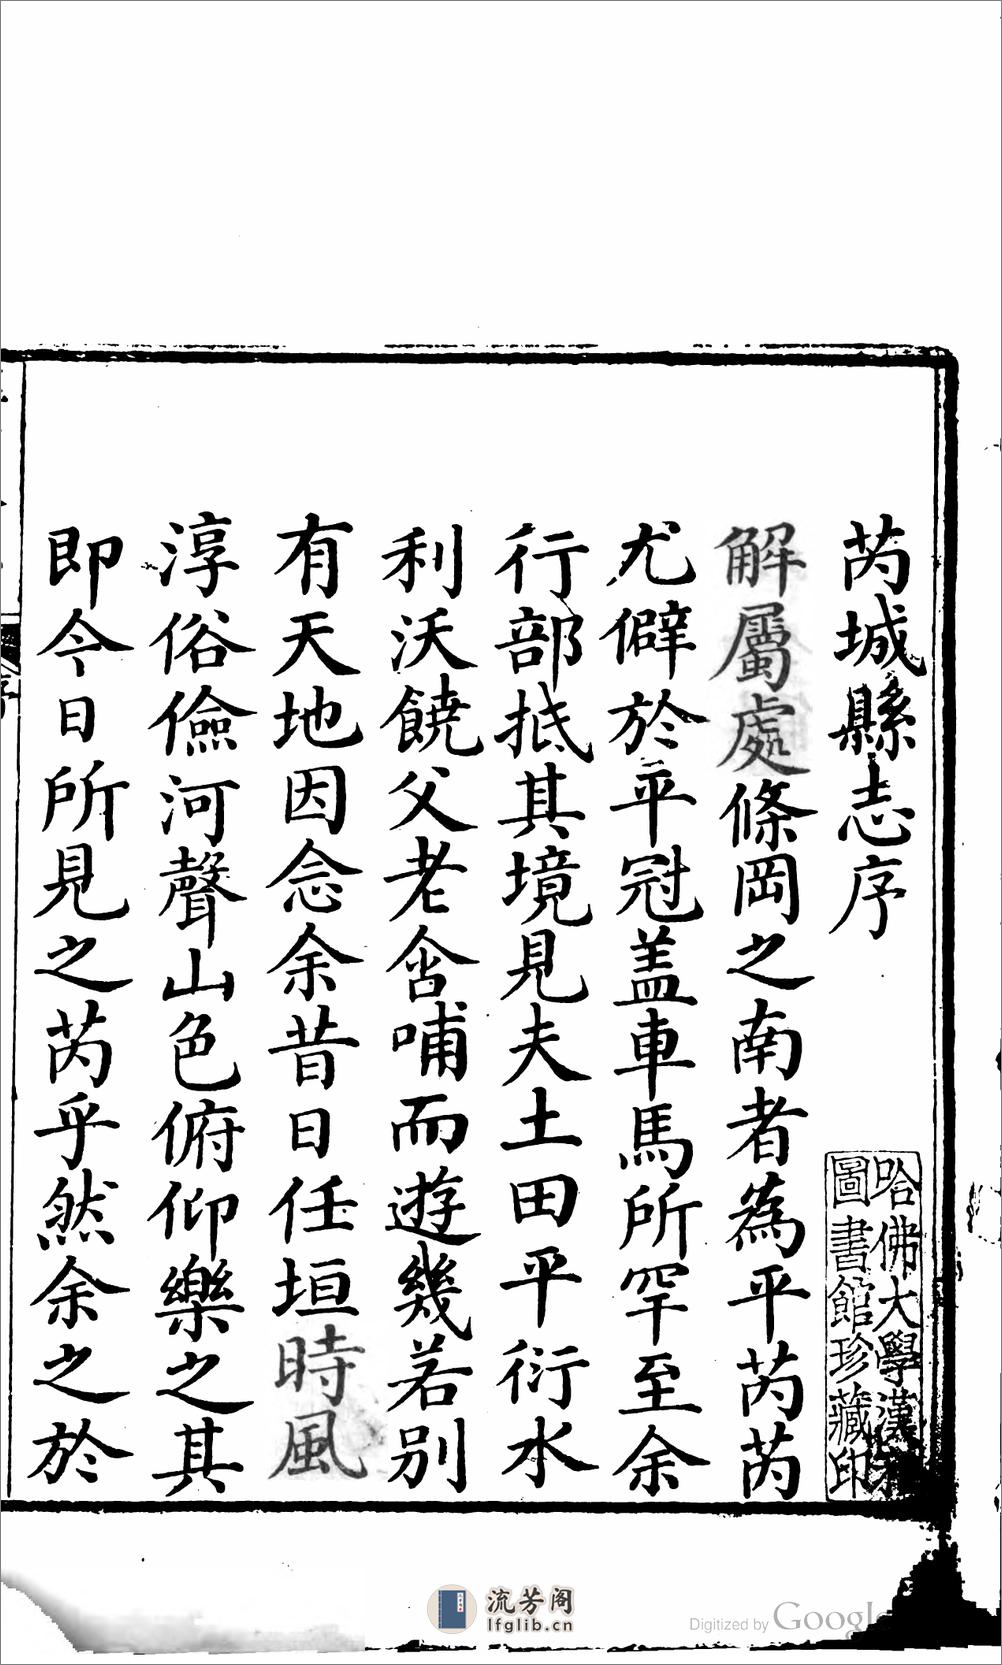 芮城縣志序
解屬處條岡之南者為平芮芮
尤僻於平冠盖車馬所罕至余
行部抵其境見夫土田平衍水
利沃饒父老含哺而遊幾若別
有天地因念余昔日任垣時風
淳俗儉河聲山色俯仰樂之其
即今日所見之芮乎然余之於
哈佛大學漢和
圖書館珍藏印
序
流芳阁
lfglib.cn
Digitized by Google